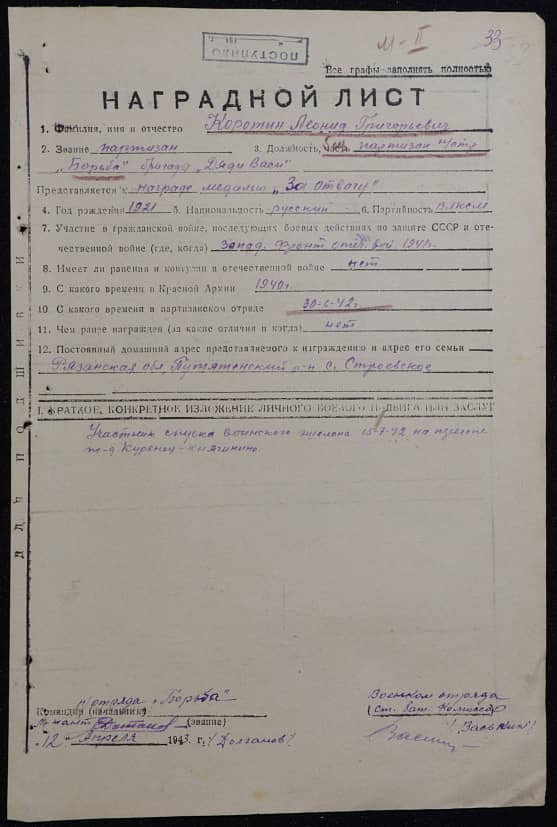 М-II
33
ПОСТУПИЛО
Все графы заполнять полностью
НАГРАДНОЙ ЛИСТ
1. Фамилия, имя и отчество Коротин Леонид Григорьевич
2. Звание партизан 3. Должность, часть партизан п/отр
„Борьба" бригады „Дяди Васи"
Представляется к награде медалью „За отвагу"
4. Год рождения 1921 5. Национальность русский 6. Партийность влксм
7. Участие в гражданской войне, последующих боевых действиях по защите СССР и оте-
чественной войне (где, когда) Запад. Фронт отеч. вой. 1941г.
8. Имеет ли ранения и контузии в отечественной войне нет
9. С какого времени в Красной Армии 1940г.
10. С какого времени в партизанском отряде 30-6-42г.
11. Чем ранее награжден (за какие отличия и когда) нет
12. Постоянный домашний адрес представляемого к награждению и адрес его семьи
Рязанская обл, Путятинский р-н с. Строевское
I. КРАТКОЕ, КОНКРЕТНОЕ ИЗЛОЖЕНИЕ ЛИЧНОГО БОЕВОГО ПОДВИГА ИЛИ ЗАСЛУГ
Участник спуска воинского эшелона 15-7-42 на перегоне
ж-д Куренец-Княгинино.
ДЛЯ ПОДШИВКИ
п/отряда „Борьба"
Командир (начальник)
(звание)
12 Апреля 1943 г. /Долганов/
Военком отряда
(ст. бат. Комиссар